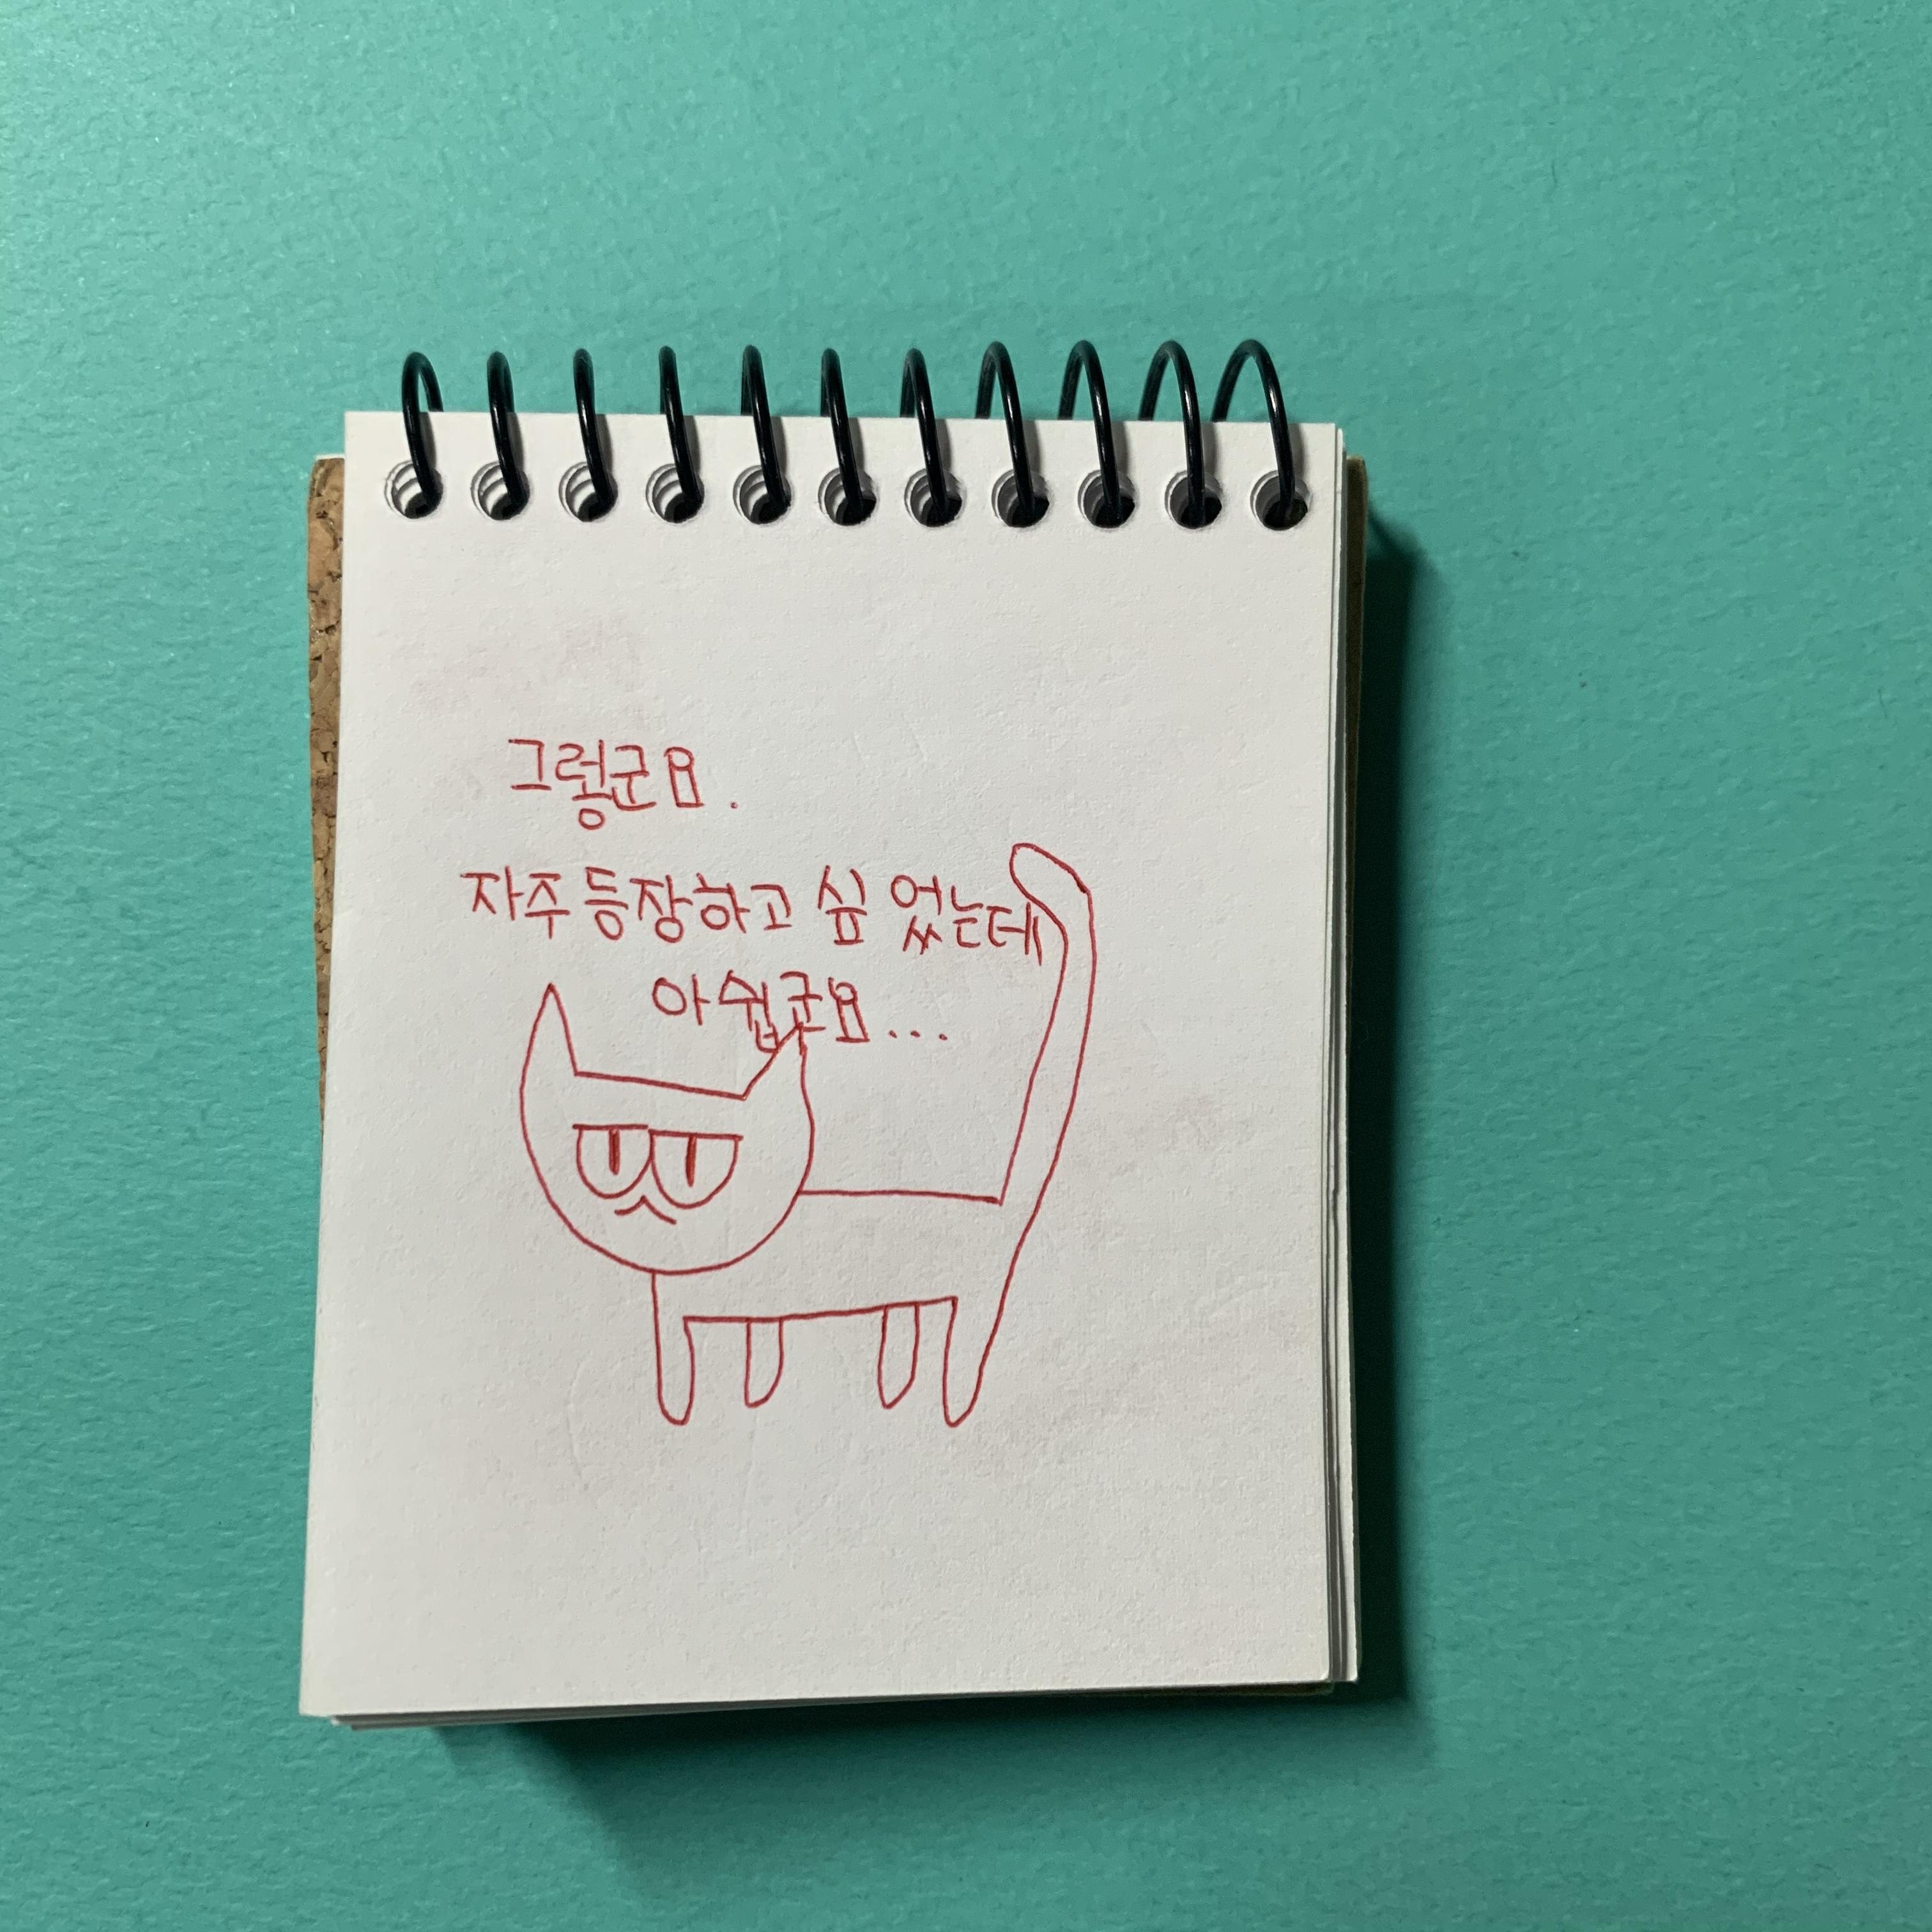 그렇군요.
자주 등장하고 싶었는데
아쉽군요...